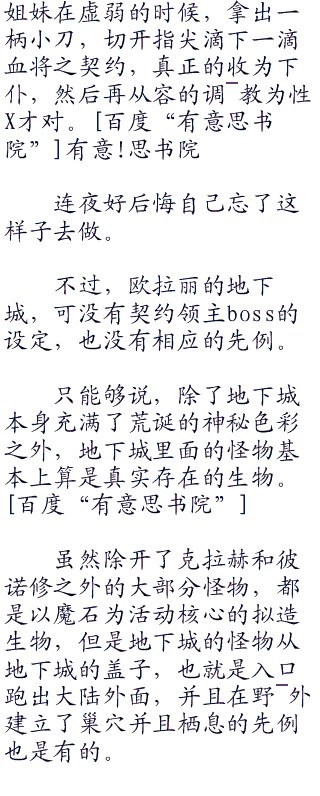 姐妹在虚弱的时候，拿出一
柄小刀，切开指尖滴下一滴
血将之契约，真正的收为下
仆，然后再从容的调¯教为性
X才对。[百度“有意思书
院”]有意!思书院
连夜好后悔自己忘了这
样子去做。
不过，欧拉丽的地下
城，可没有契约领主boss的
设定，也没有相应的先例。
只能够说，除了地下城
本身充满了荒诞的神秘色彩
之外，地下城里面的怪物基
本上算是真实存在的生物。
[百度“有意思书院”]
虽然除开了克拉赫和彼
诺修之外的大部分怪物，都
是以魔石为活动核心的拟造
生物，但是地下城的怪物从
地下城的盖子，也就是入口
跑出大陆外面，并且在野¯外
建立了巢穴并且栖息的先例
也是有的。